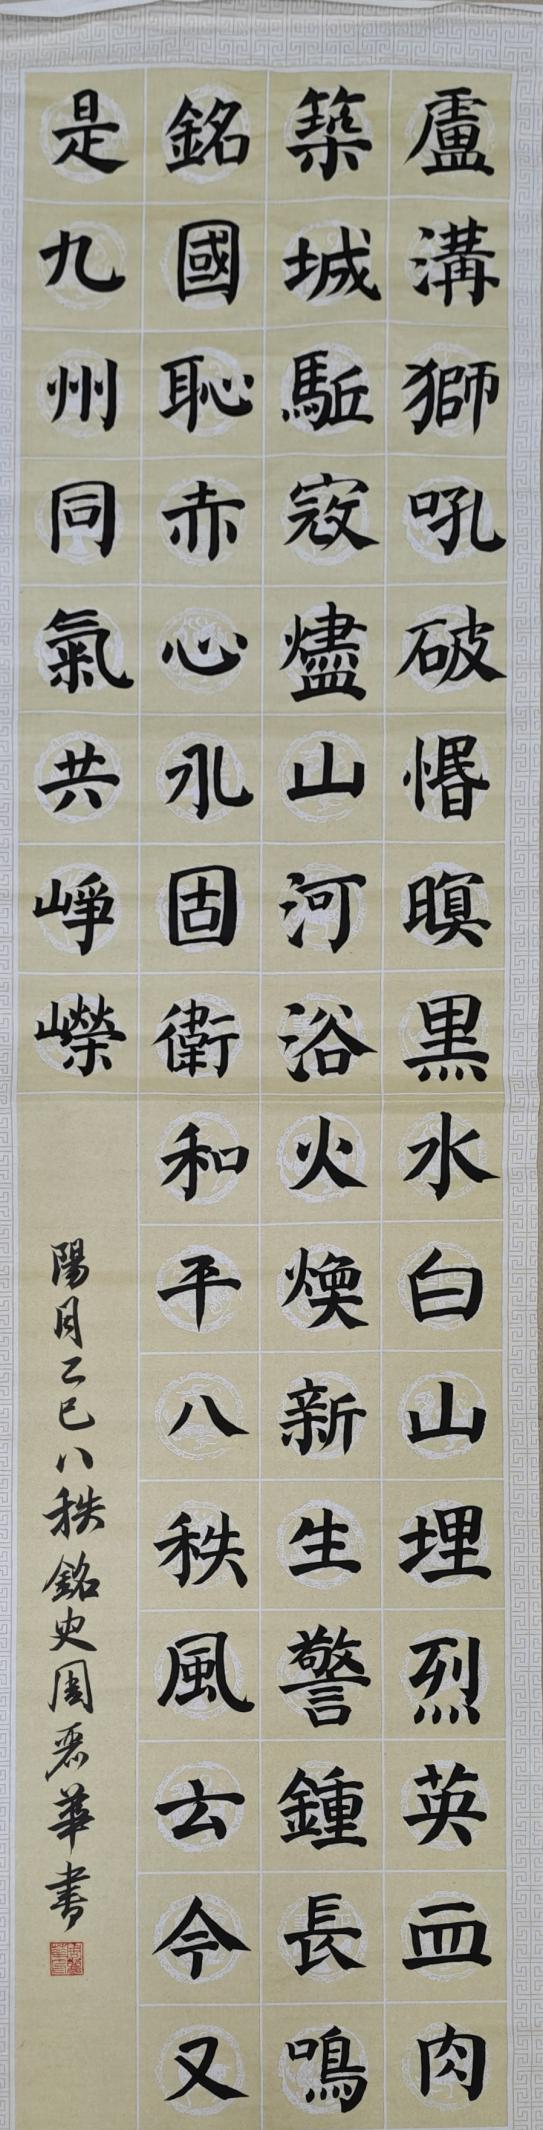 盧溝獅吼破惛暝黒水白山埋烈英血肉
築城駈寇燼山河浴火煥新生警鍾長鳴
銘國恥赤心永固衛和平八秩風云今又
是九州同氣共崢嶸
陽月乙巳八秩銘史周丽華書